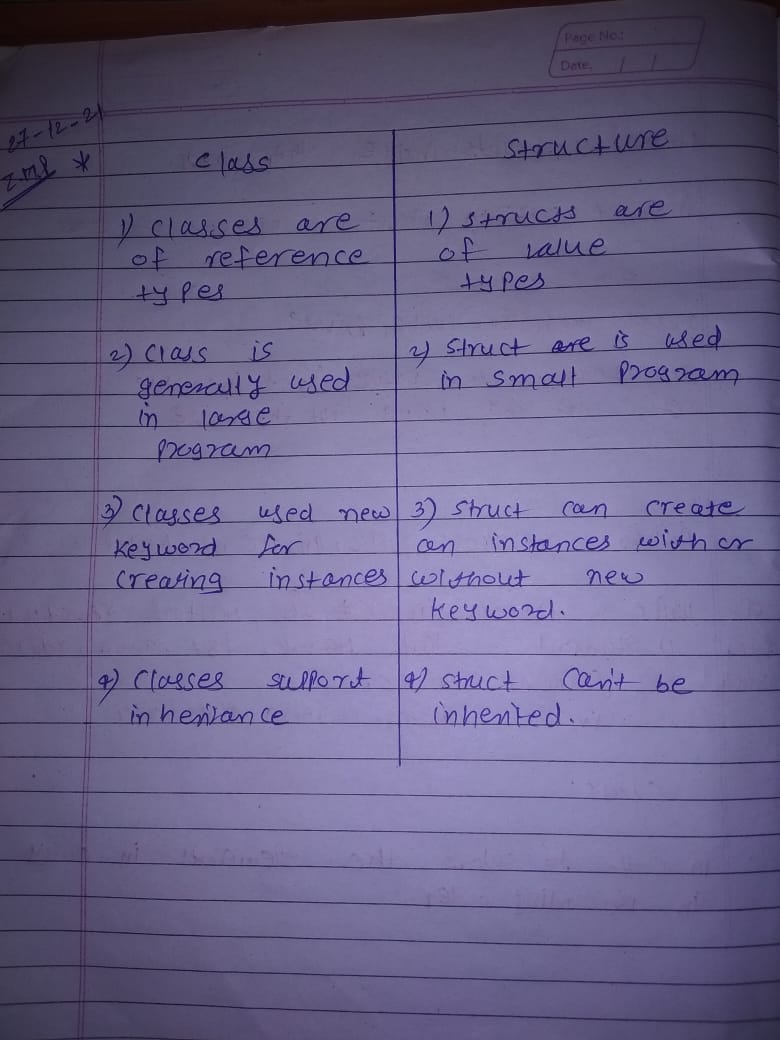 Page No.:
Date. / /
27-12-21
Imp *
Class
Structure
1) Classes are
of reference
types
1) structs are
of value
types
2) Class is
generally used
in large
program
2) Struct are is used
in small program
3) Classes used new
keyword for
creating instances
3) Struct can create
an instances with or
without new
keyword.
4) Classes support
inheritance
4) struct can't be
inherited.